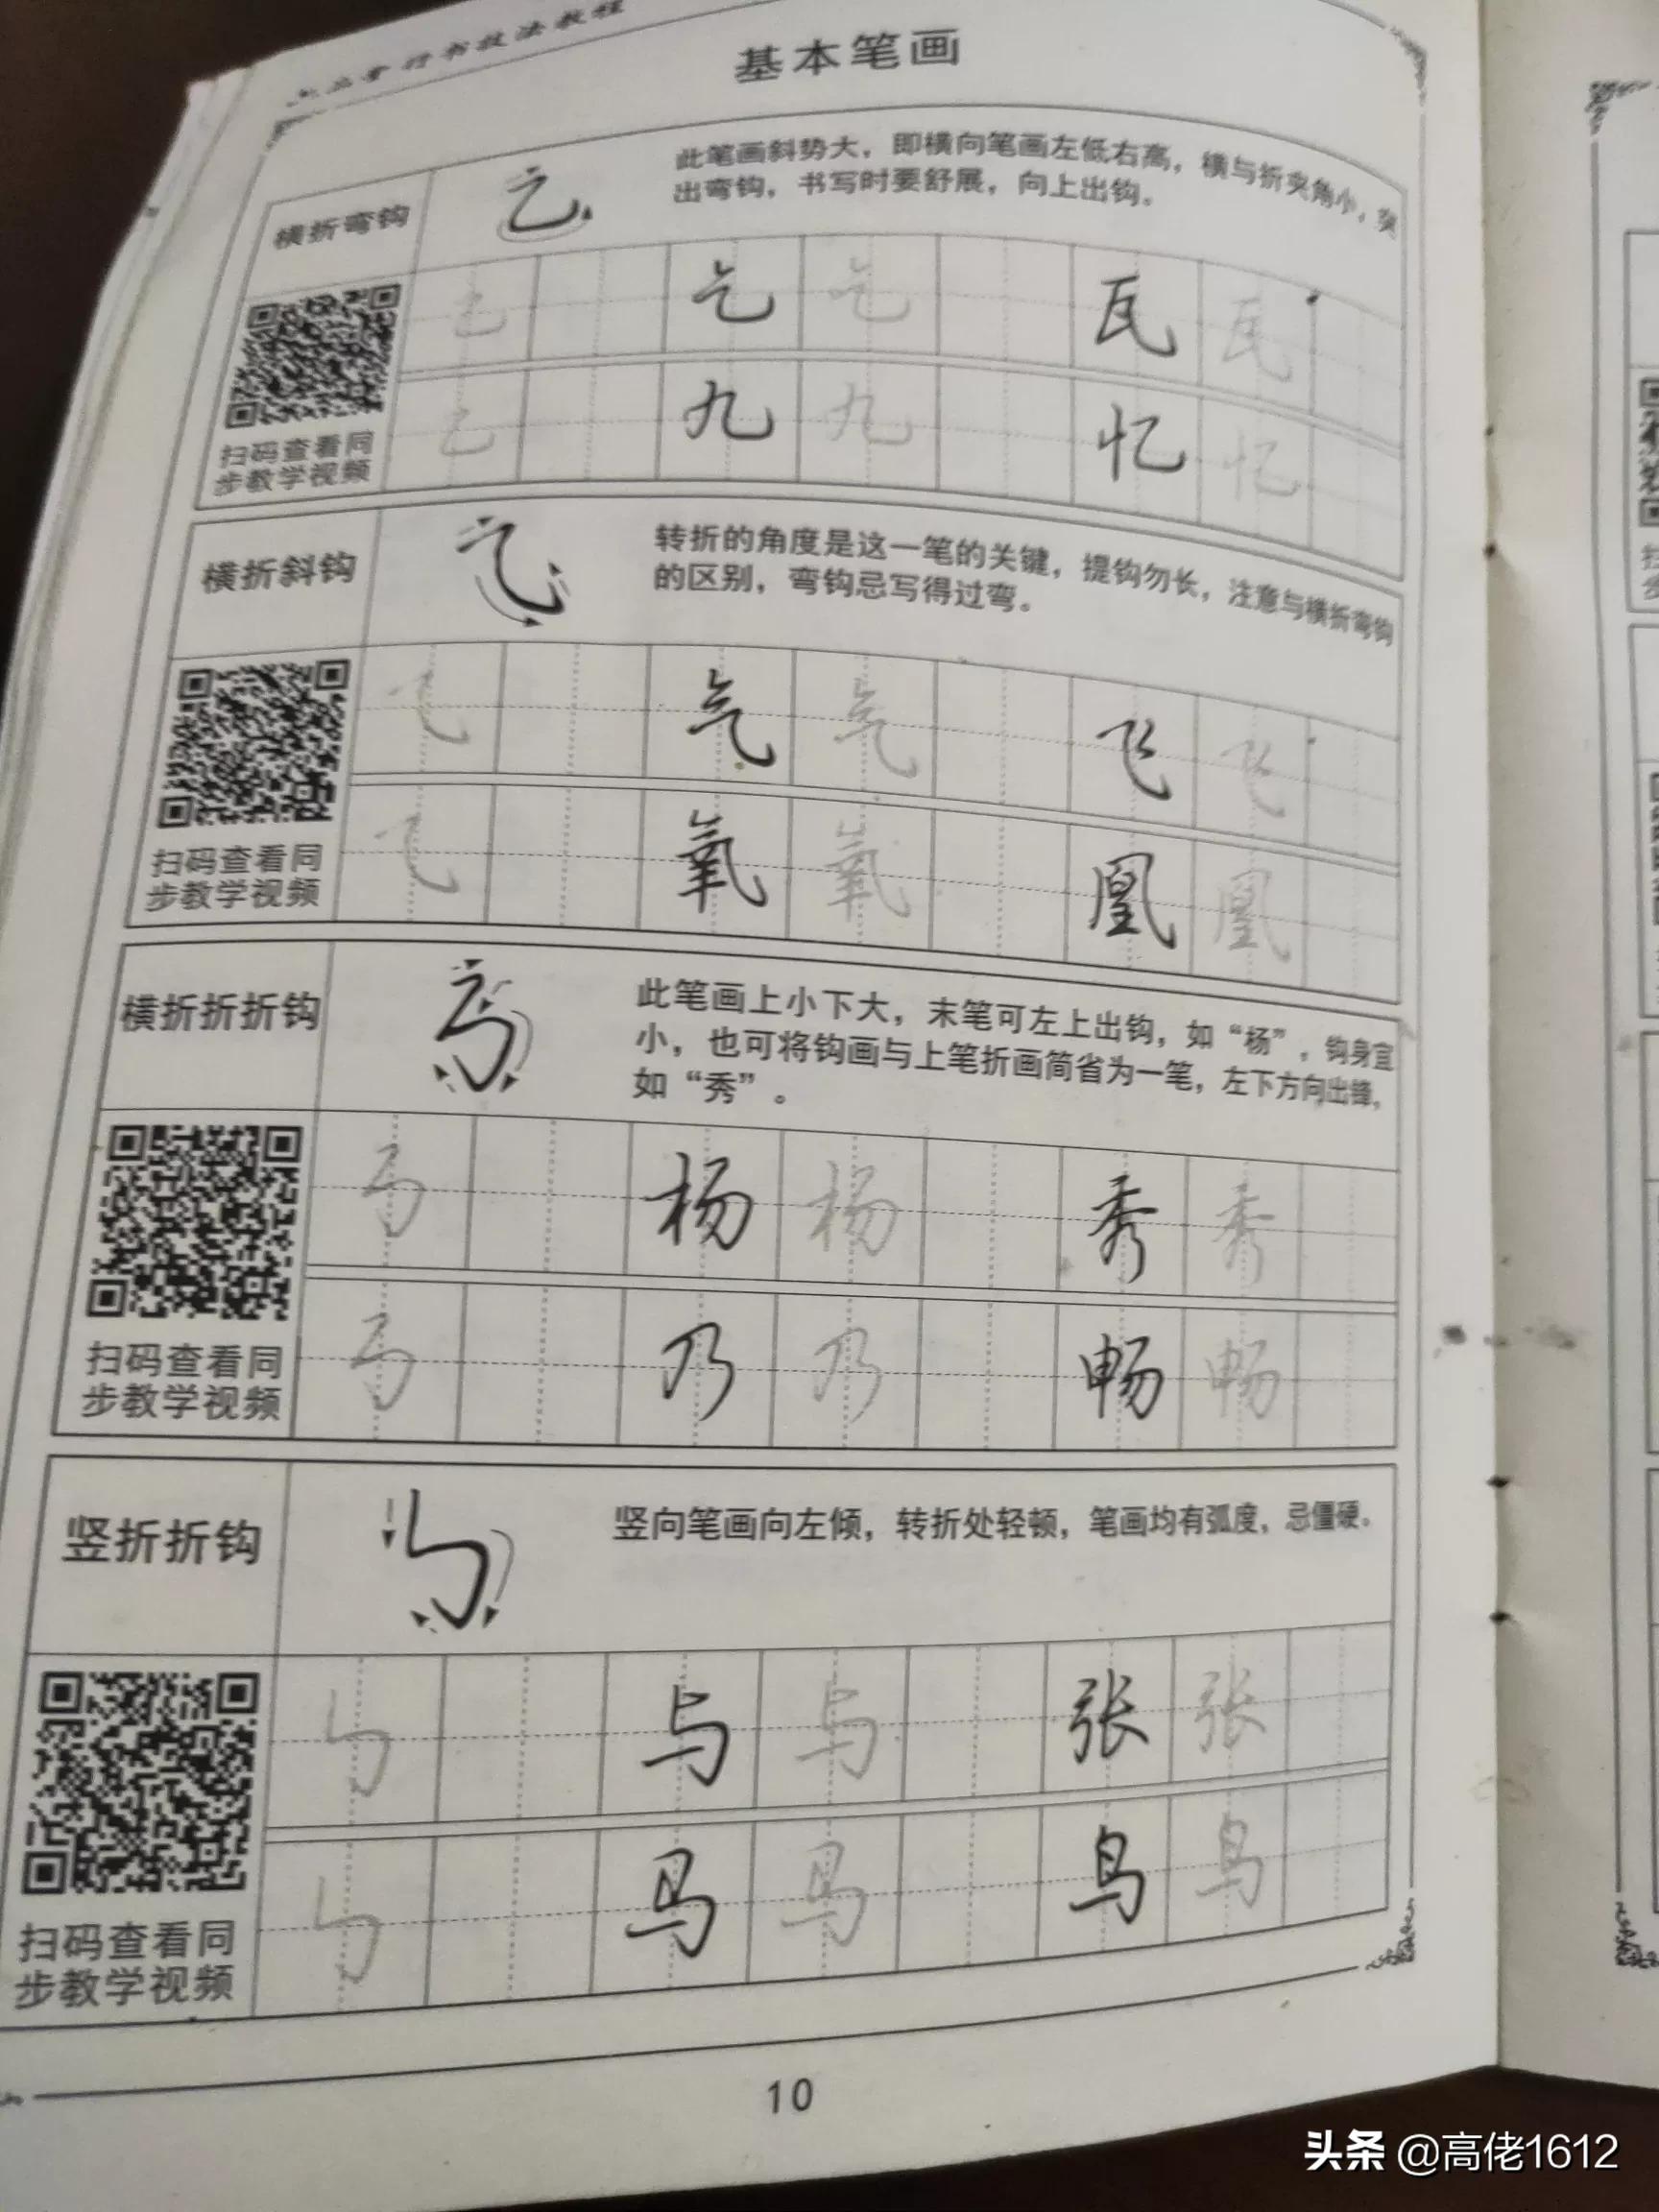 六品堂行书技法教程
基本笔画
横折弯钩
此笔画斜势大，即横向笔画左低右高，横与折夹角小，突
出弯钩，书写时要舒展，向上出钩。
乞 乞 瓦 瓦
九 九 忆 忆
扫码查看同
步教学视频
横折斜钩
转折的角度是这一笔的关键，提钩勿长，注意与横折弯钩
的区别，弯钩忌写得过弯。
气 气 飞 飞
氧 氧 凰 凰
扫码查看同
步教学视频
横折折折钩
此笔画上小下大，末笔可左上出钩，如“杨”，钩身宜
小，也可将钩画与上笔折画简省为一笔，左下方向出锋，
如“秀”。
杨 杨 秀 秀
乃 乃 畅 畅
扫码查看同
步教学视频
竖折折钩
竖向笔画向左倾，转折处轻顿，笔画均有弧度，忌僵硬。
与 与 张 张
马 马 鸟 鸟
扫码查看同
步教学视频
10
头条 @高佬1612